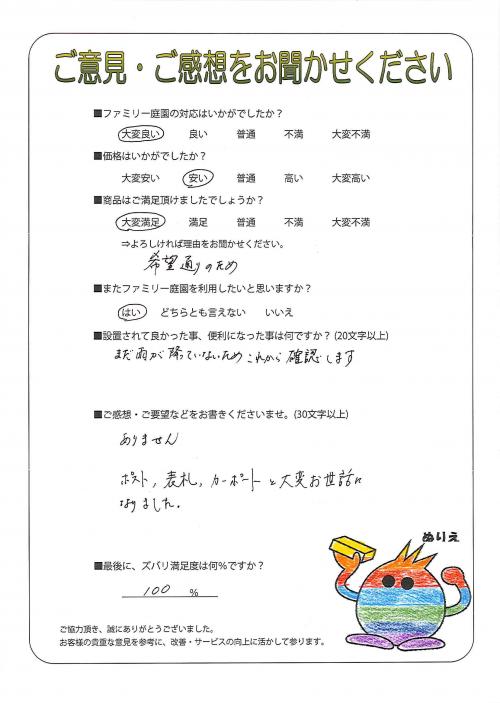 ご意見・ご感想をお聞かせください
■ファミリー庭園の対応はいかがでしたか？
大変良い 良い 普通 不満 大変不満
■価格はいかがでしたか？
大変安い 安い 普通 高い 大変高い
■商品はご満足頂けましたでしょうか？
大変満足 満足 普通 不満 大変不満
⇒よろしければ理由をお聞かせください。
希望通りのため
■またファミリー庭園を利用したいと思いますか？
はい どちらとも言えない いいえ
■設置されて良かった事、便利になった事は何ですか？(20文字以上)
まだ雨が降っていないためこれから確認します
■ご感想・ご要望などをお書きくださいませ。(30文字以上)
ありません
ポスト，表札，カーポートと大変お世話に
なりました。
ぬりえ
■最後に、ズバリ満足度は何％ですか？
100 %
ご協力頂き、誠にありがとうございました。
お客様の貴重な意見を参考に、改善・サービスの向上に活かして参ります。